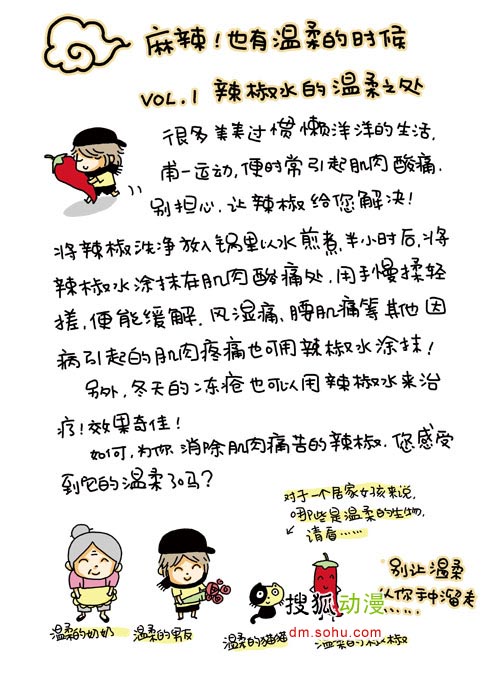 麻辣!也有温柔的时候
VOL.1 辣椒水的温柔之处
很多美美过惯懒洋洋的生活,
甫一运动,便时常引起肌肉酸痛.
别担心,让辣椒给您解决!
将辣椒洗净放入锅里以水煎煮,半小时后,将
辣椒水涂抹在肌肉酸痛处,用手慢揉轻
搓,便能缓解.风湿痛、腰肌痛等其他因
病引起的肌肉疼痛也可用辣椒水涂抹!
另外,冬天的冻疮也可以用辣椒水来治
疗!效果奇佳!
如何,为你消除肌肉痛苦的辣椒,您感受
到它的温柔了吗?
对于一个居家女孩来说,
哪些是温柔的生物,
请看……
别让温柔
从你手中溜走
……
搜狐动漫
dm.sohu.com
温柔的奶奶
温柔的男友
温柔的猫猫
温柔的小辣椒